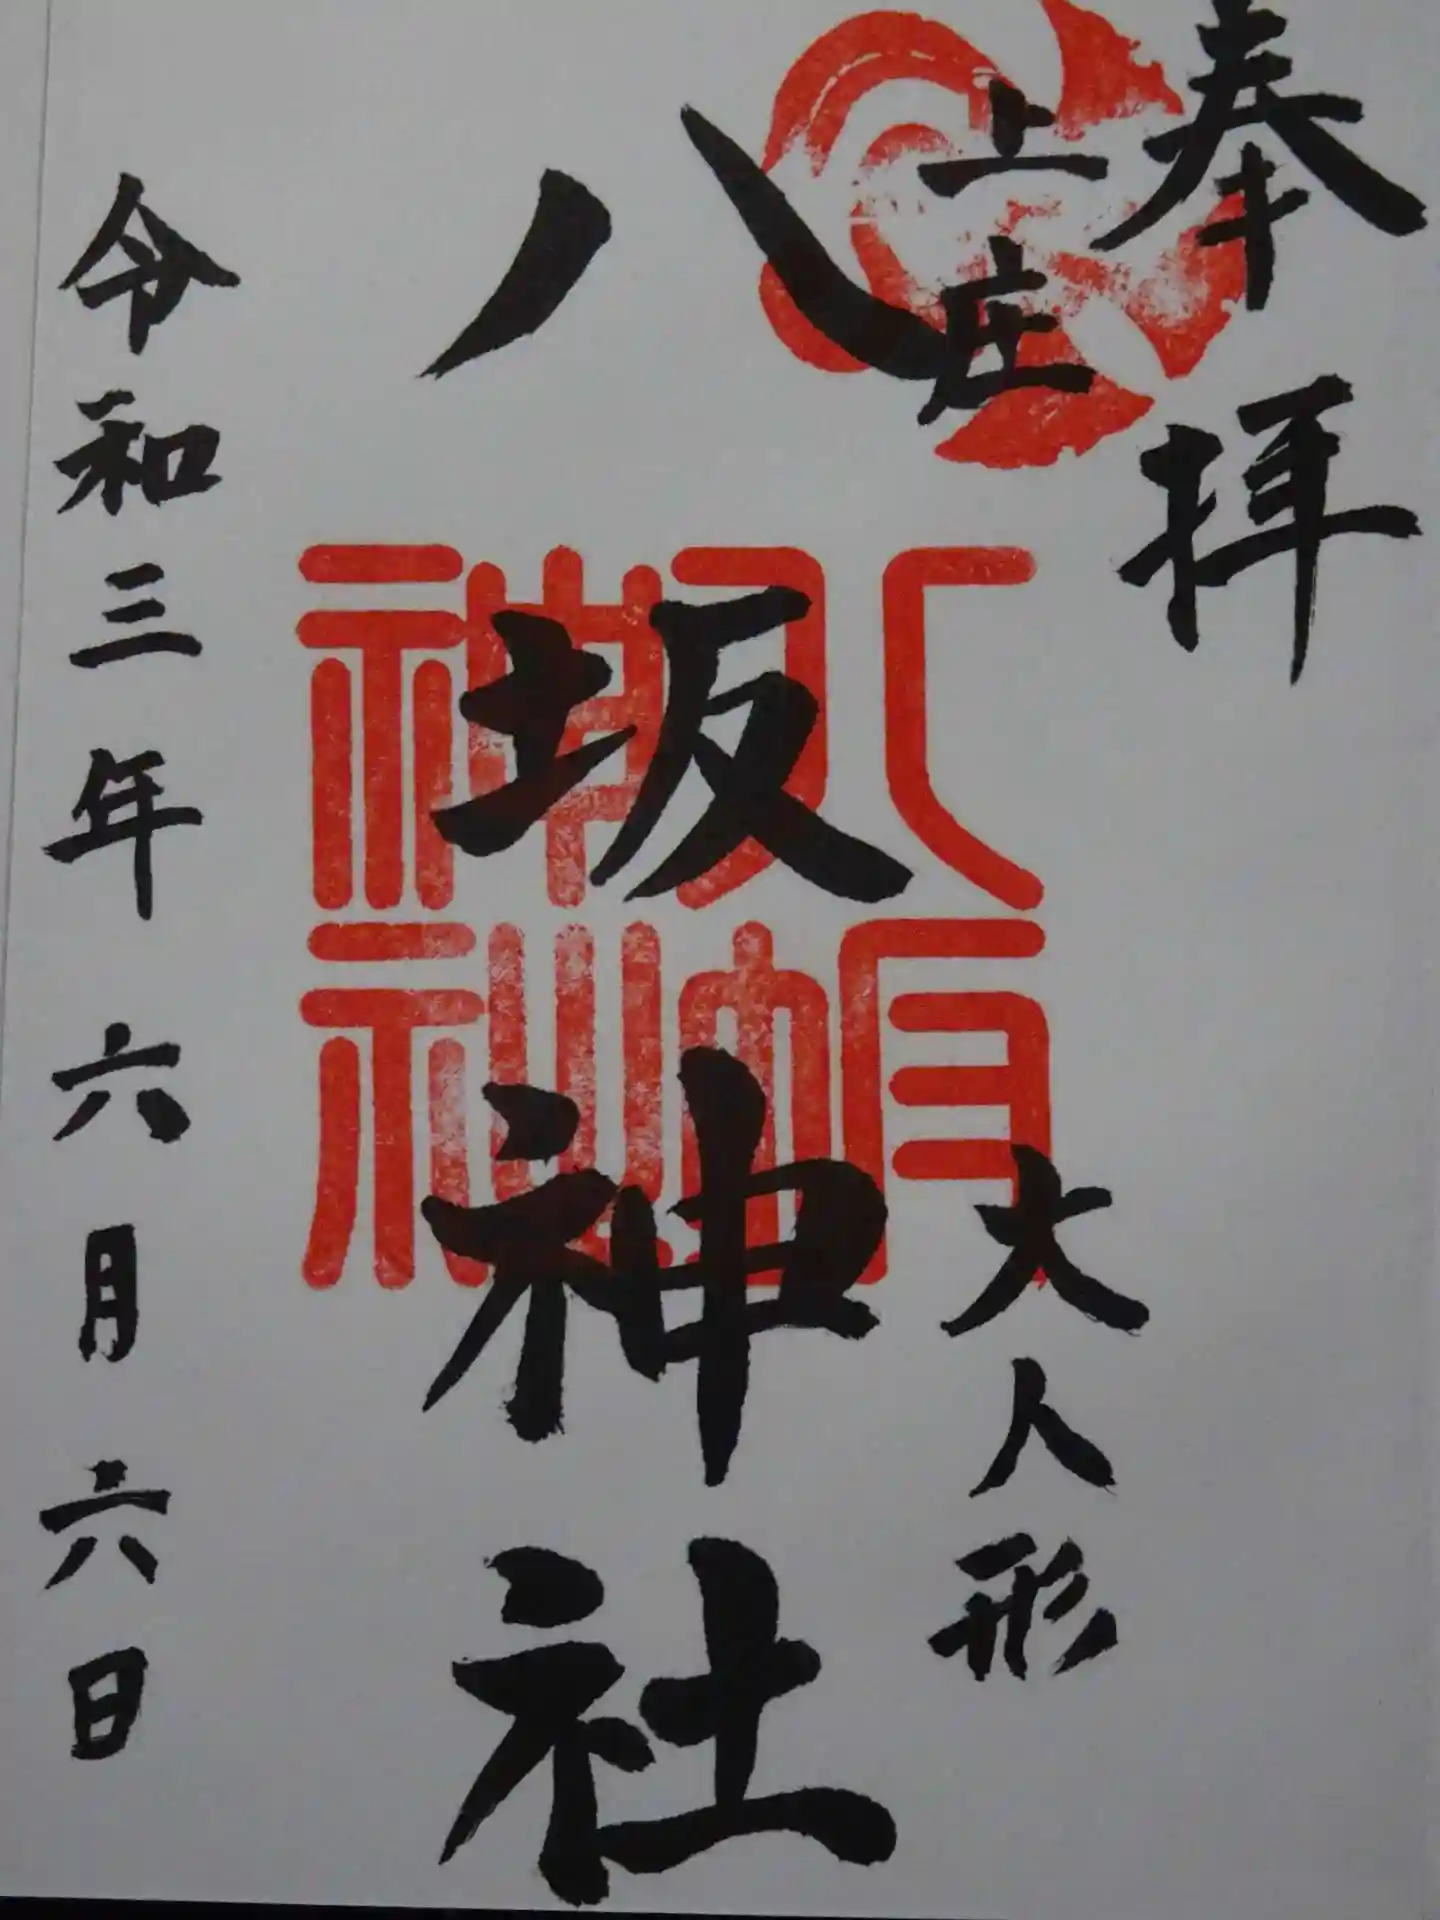 奉拝
上庄
大人形
八坂神社
八坂神社
令和三年六月六日